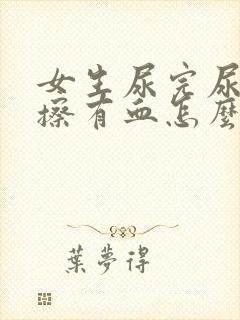 女生尿完尿
擦有血怎麼
葉夢得